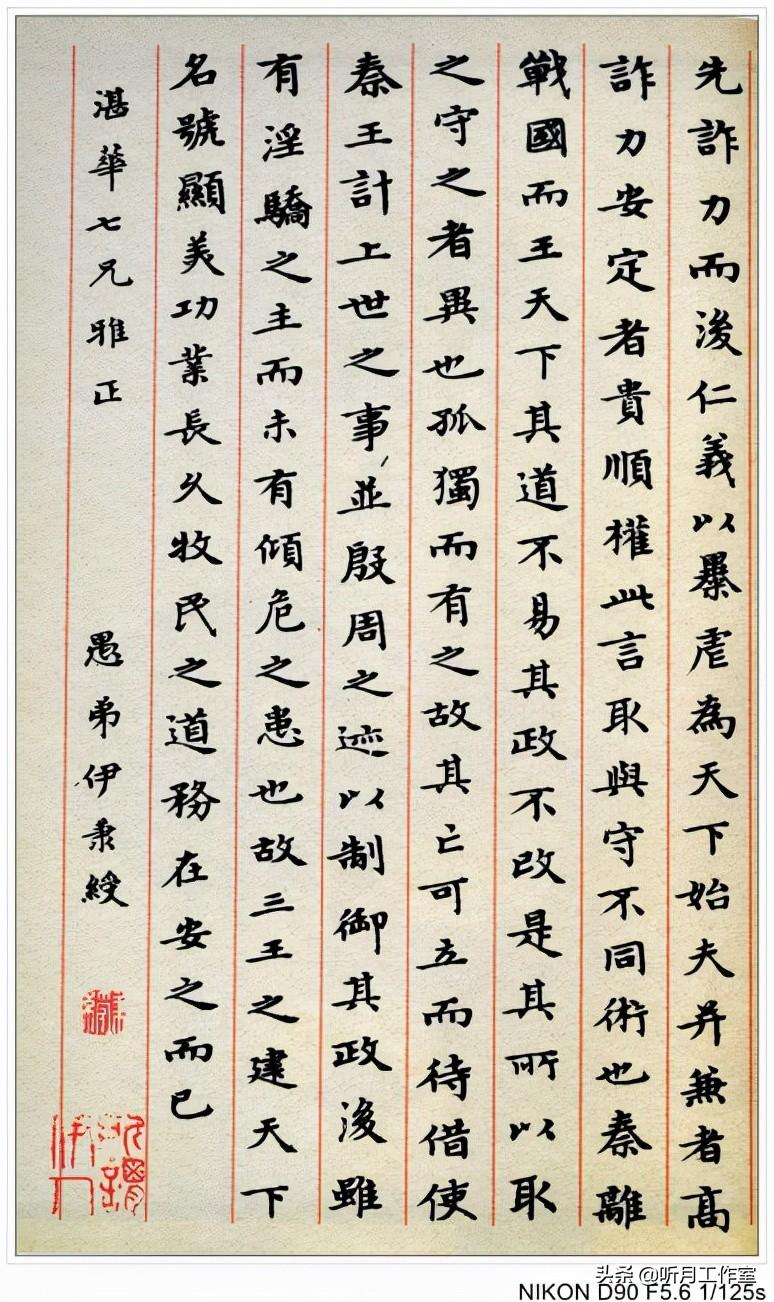 先詐力而後仁義以暴虐為天下始夫并兼者高
詐力安定者貴順權此言取與守不同術也秦離
戰國而王天下其道不易其政不改是其所以取
之守之者異也孤獨而有之故其亡可立而待借使
秦王計上世之事並殷周之迹以制御其政後雖
有淫驕之主而未有傾危之患也故三王之建天下
名號顯美功業長久牧民之道務在安之而已
湛華七兄雅正
愚弟伊秉綬
头条 @听月工作室
NIKON D90 F5.6 1/125s